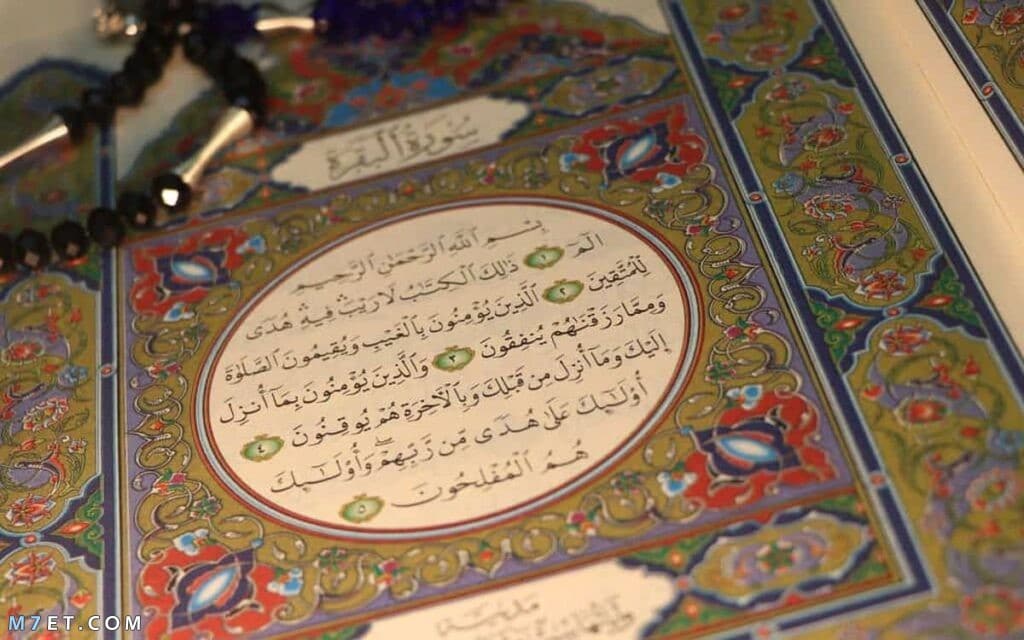 سُورَةُ الْبَقَرَةِ
بِسْمِ اللَّهِ الرَّحْمَٰنِ الرَّحِيمِ
الٓمٓ ١ ذَٰلِكَ الْكِتَٰبُ لَا رَيْبَ فِيهِ هُدًى
لِلْمُتَّقِينَ ٢ الَّذِينَ يُؤْمِنُونَ بِالْغَيْبِ وَيُقِيمُونَ الصَّلَوٰةَ
وَمِمَّا رَزَقْنَٰهُمْ يُنْفِقُونَ ٣ وَالَّذِينَ يُؤْمِنُونَ بِمَا أُنْزِلَ
إِلَيْكَ وَمَا أُنْزِلَ مِنْ قَبْلِكَ وَبِالْآخِرَةِ هُمْ يُوقِنُونَ ٤
أُولَٰئِكَ عَلَىٰ هُدًى مِنْ رَبِّهِمْ وَأُولَٰئِكَ
هُمُ الْمُفْلِحُونَ ٥
M7ET.COM